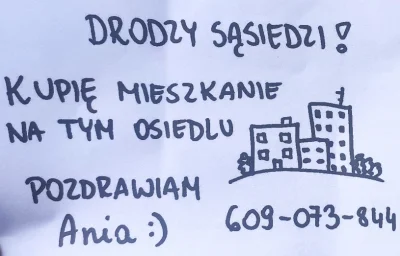 DRODZY SĄSIEDZI!
KUPIĘ MIESZKANIE
NA TYM OSIEDLU
POZDRAWIAM
Ania :)
609-073-844